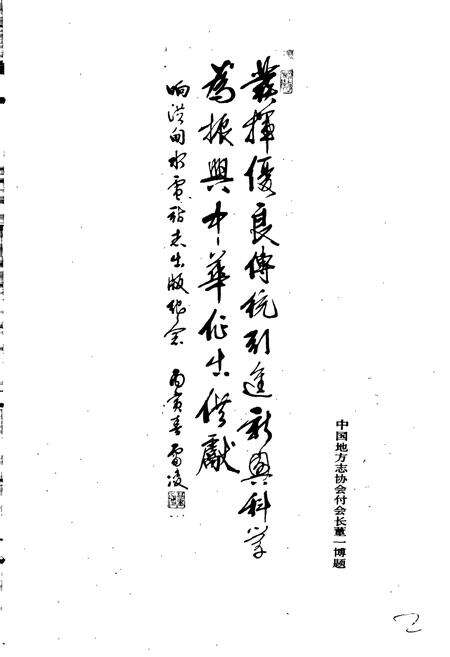 發揮優良傳統引進新興科学
為振興中華作出供獻
响洪甸水電站志出版纪念
丙寅春
中国地方志协会付会长董一博题